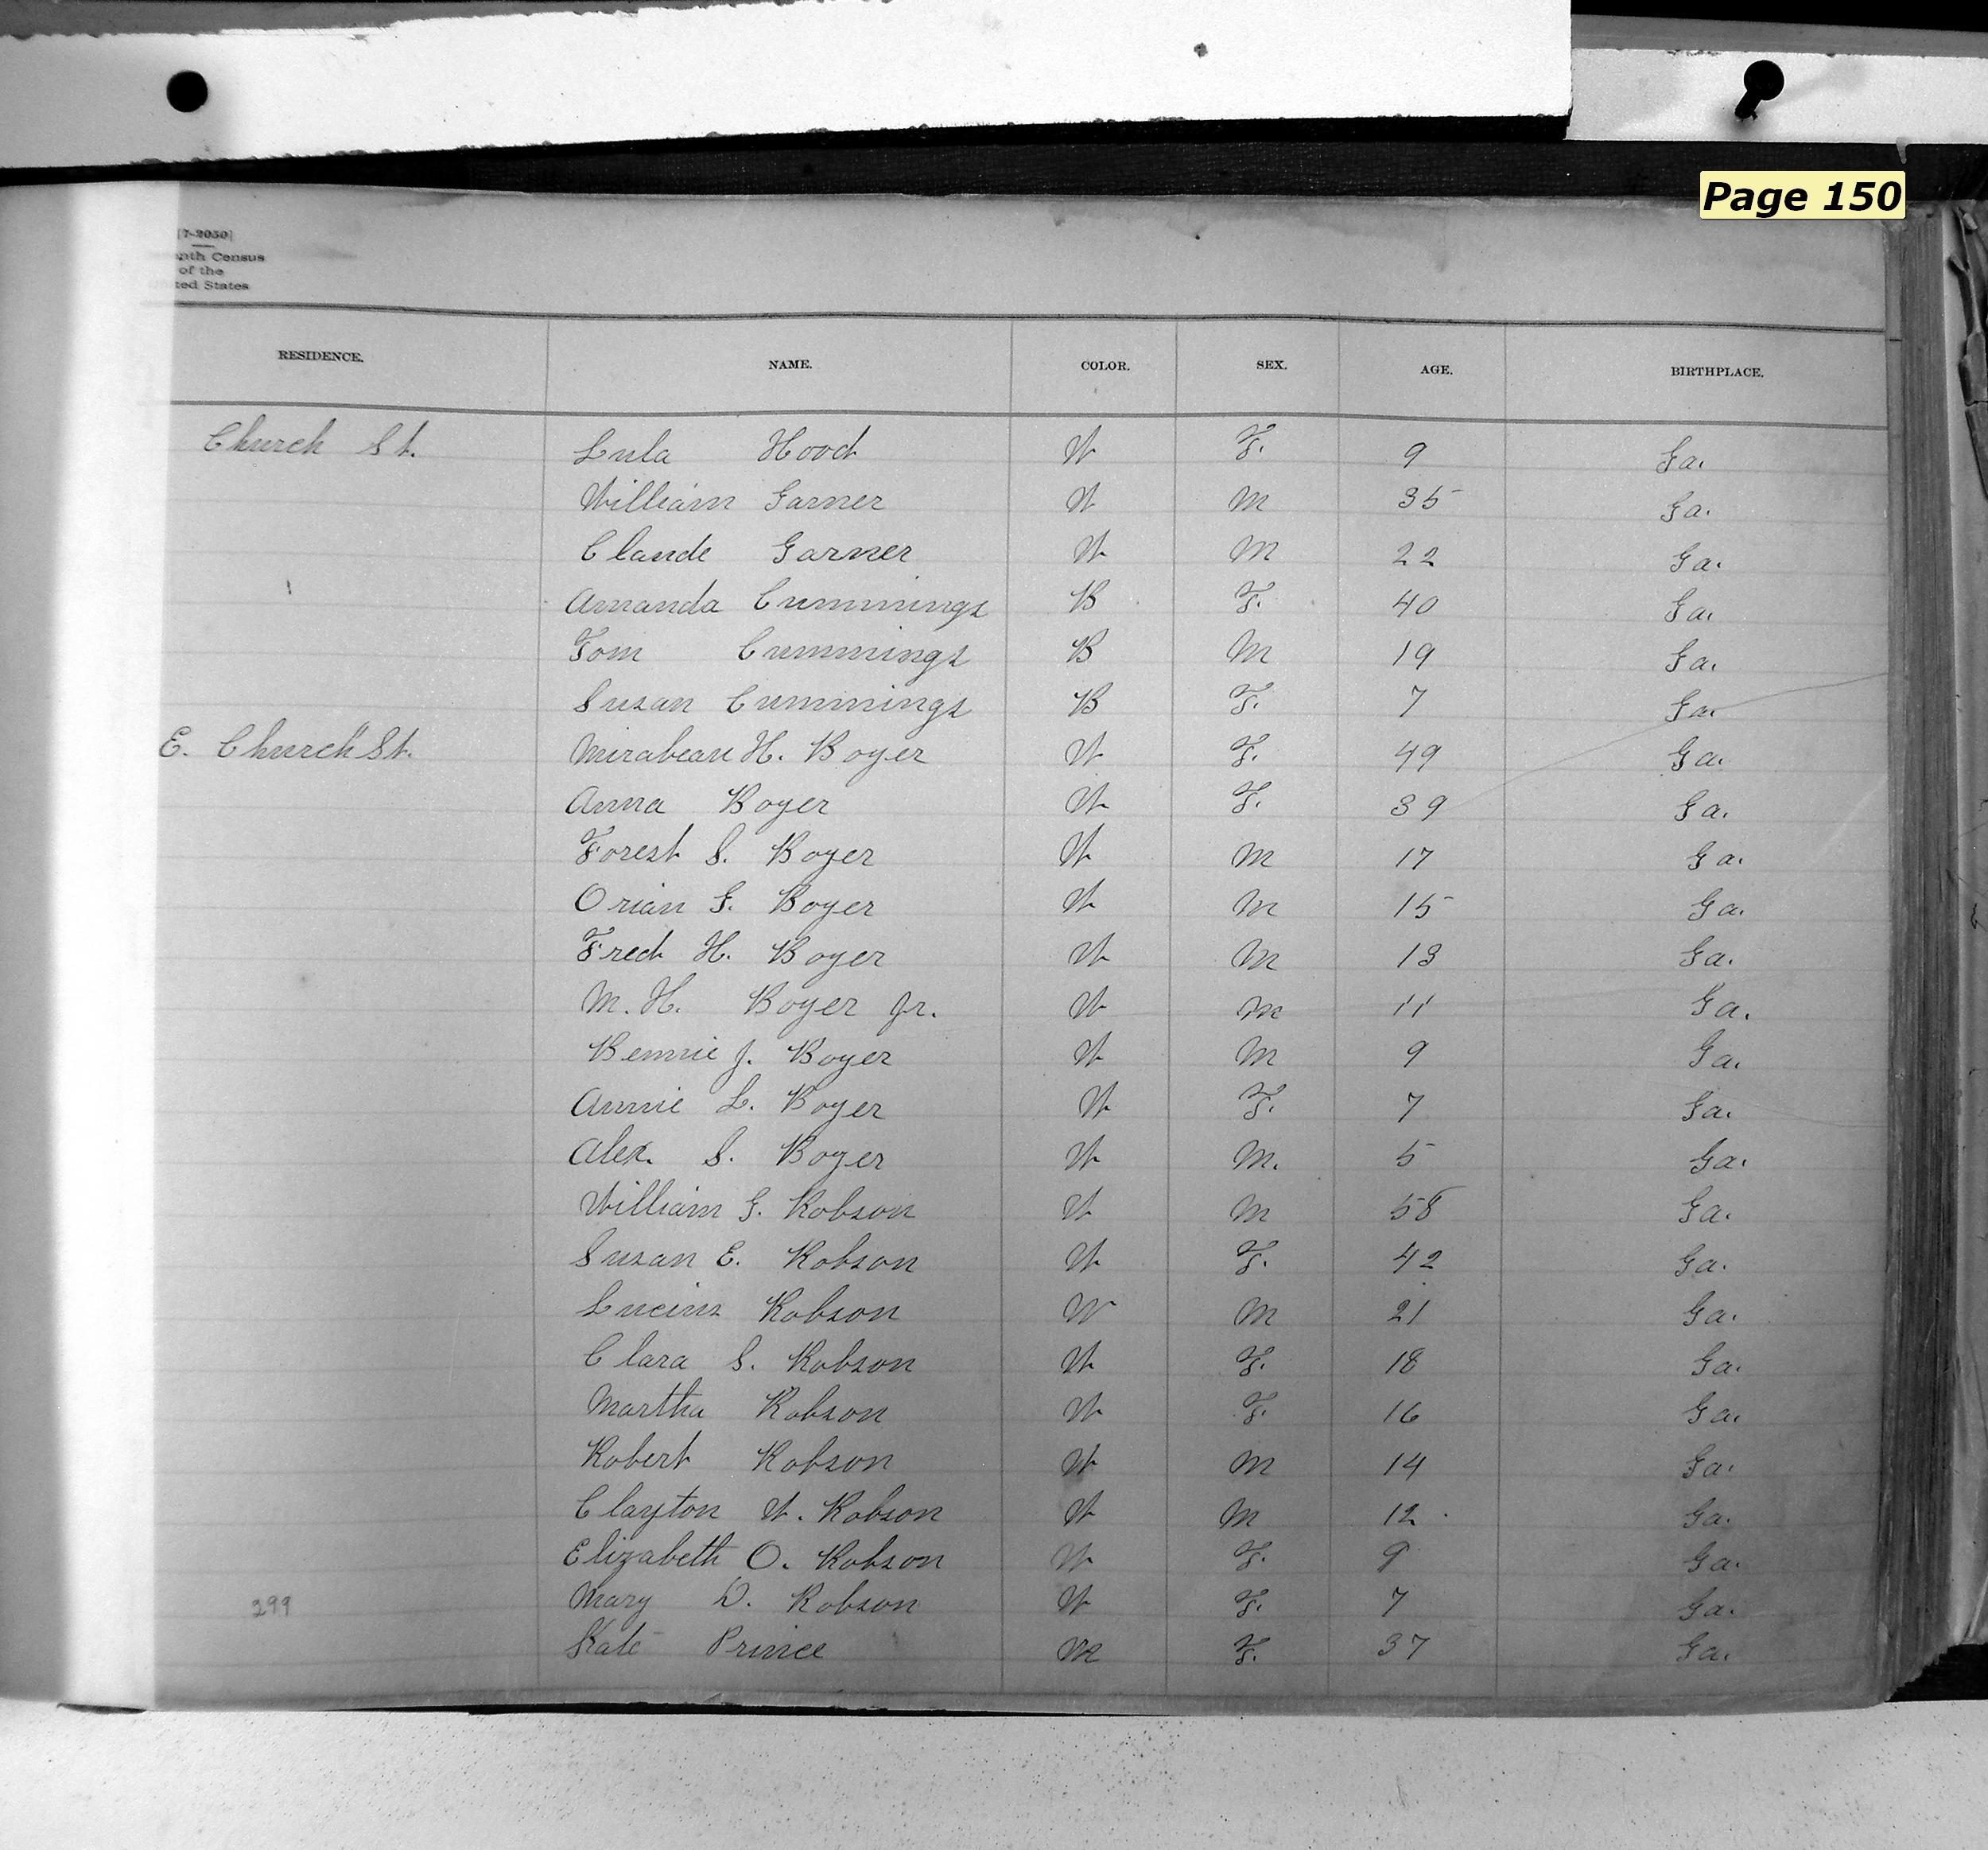 Page 150
[7-2050]
nth Census
of the
ted States
RESIDENCE. NAME. COLOR. SEX. AGE. BIRTHPLACE.
Church St. Lula Hood W F. 9 Ga.
William Garner W M 35 Ga.
Claude Garner W M 22 Ga.
Amanda Cummings B F. 40 Ga.
Tom Cummings B M 19 Ga.
Susan Cummings B F. 7 Ga.
E. Church St. Mirabeau H. Boyer W F. 49 Ga.
Anna Boyer W F. 39 Ga.
Forest S. Boyer W M 17 Ga.
Orian G. Boyer W M 15 Ga.
Fred H. Boyer W M 13 Ga.
M. H. Boyer Jr. W M 11 Ga.
Bennie J. Boyer W M 9 Ga.
Annie L. Boyer W F. 7 Ga.
Alex. S. Boyer W M. 5 Ga.
William G. Robson W M 58 Ga.
Susan E. Robson W F. 42 Ga.
Lucius Robson W M 21 Ga.
Clara S. Robson W F. 18 Ga.
Martha Robson W F. 16 Ga.
Robert Robson W M 14 Ga.
Clayton W. Robson W M 12 Ga.
Elizabeth O. Robson W F. 9 Ga.
299 Mary D. Robson W F. 7 Ga.
Kate Prince M F. 37 Ga.